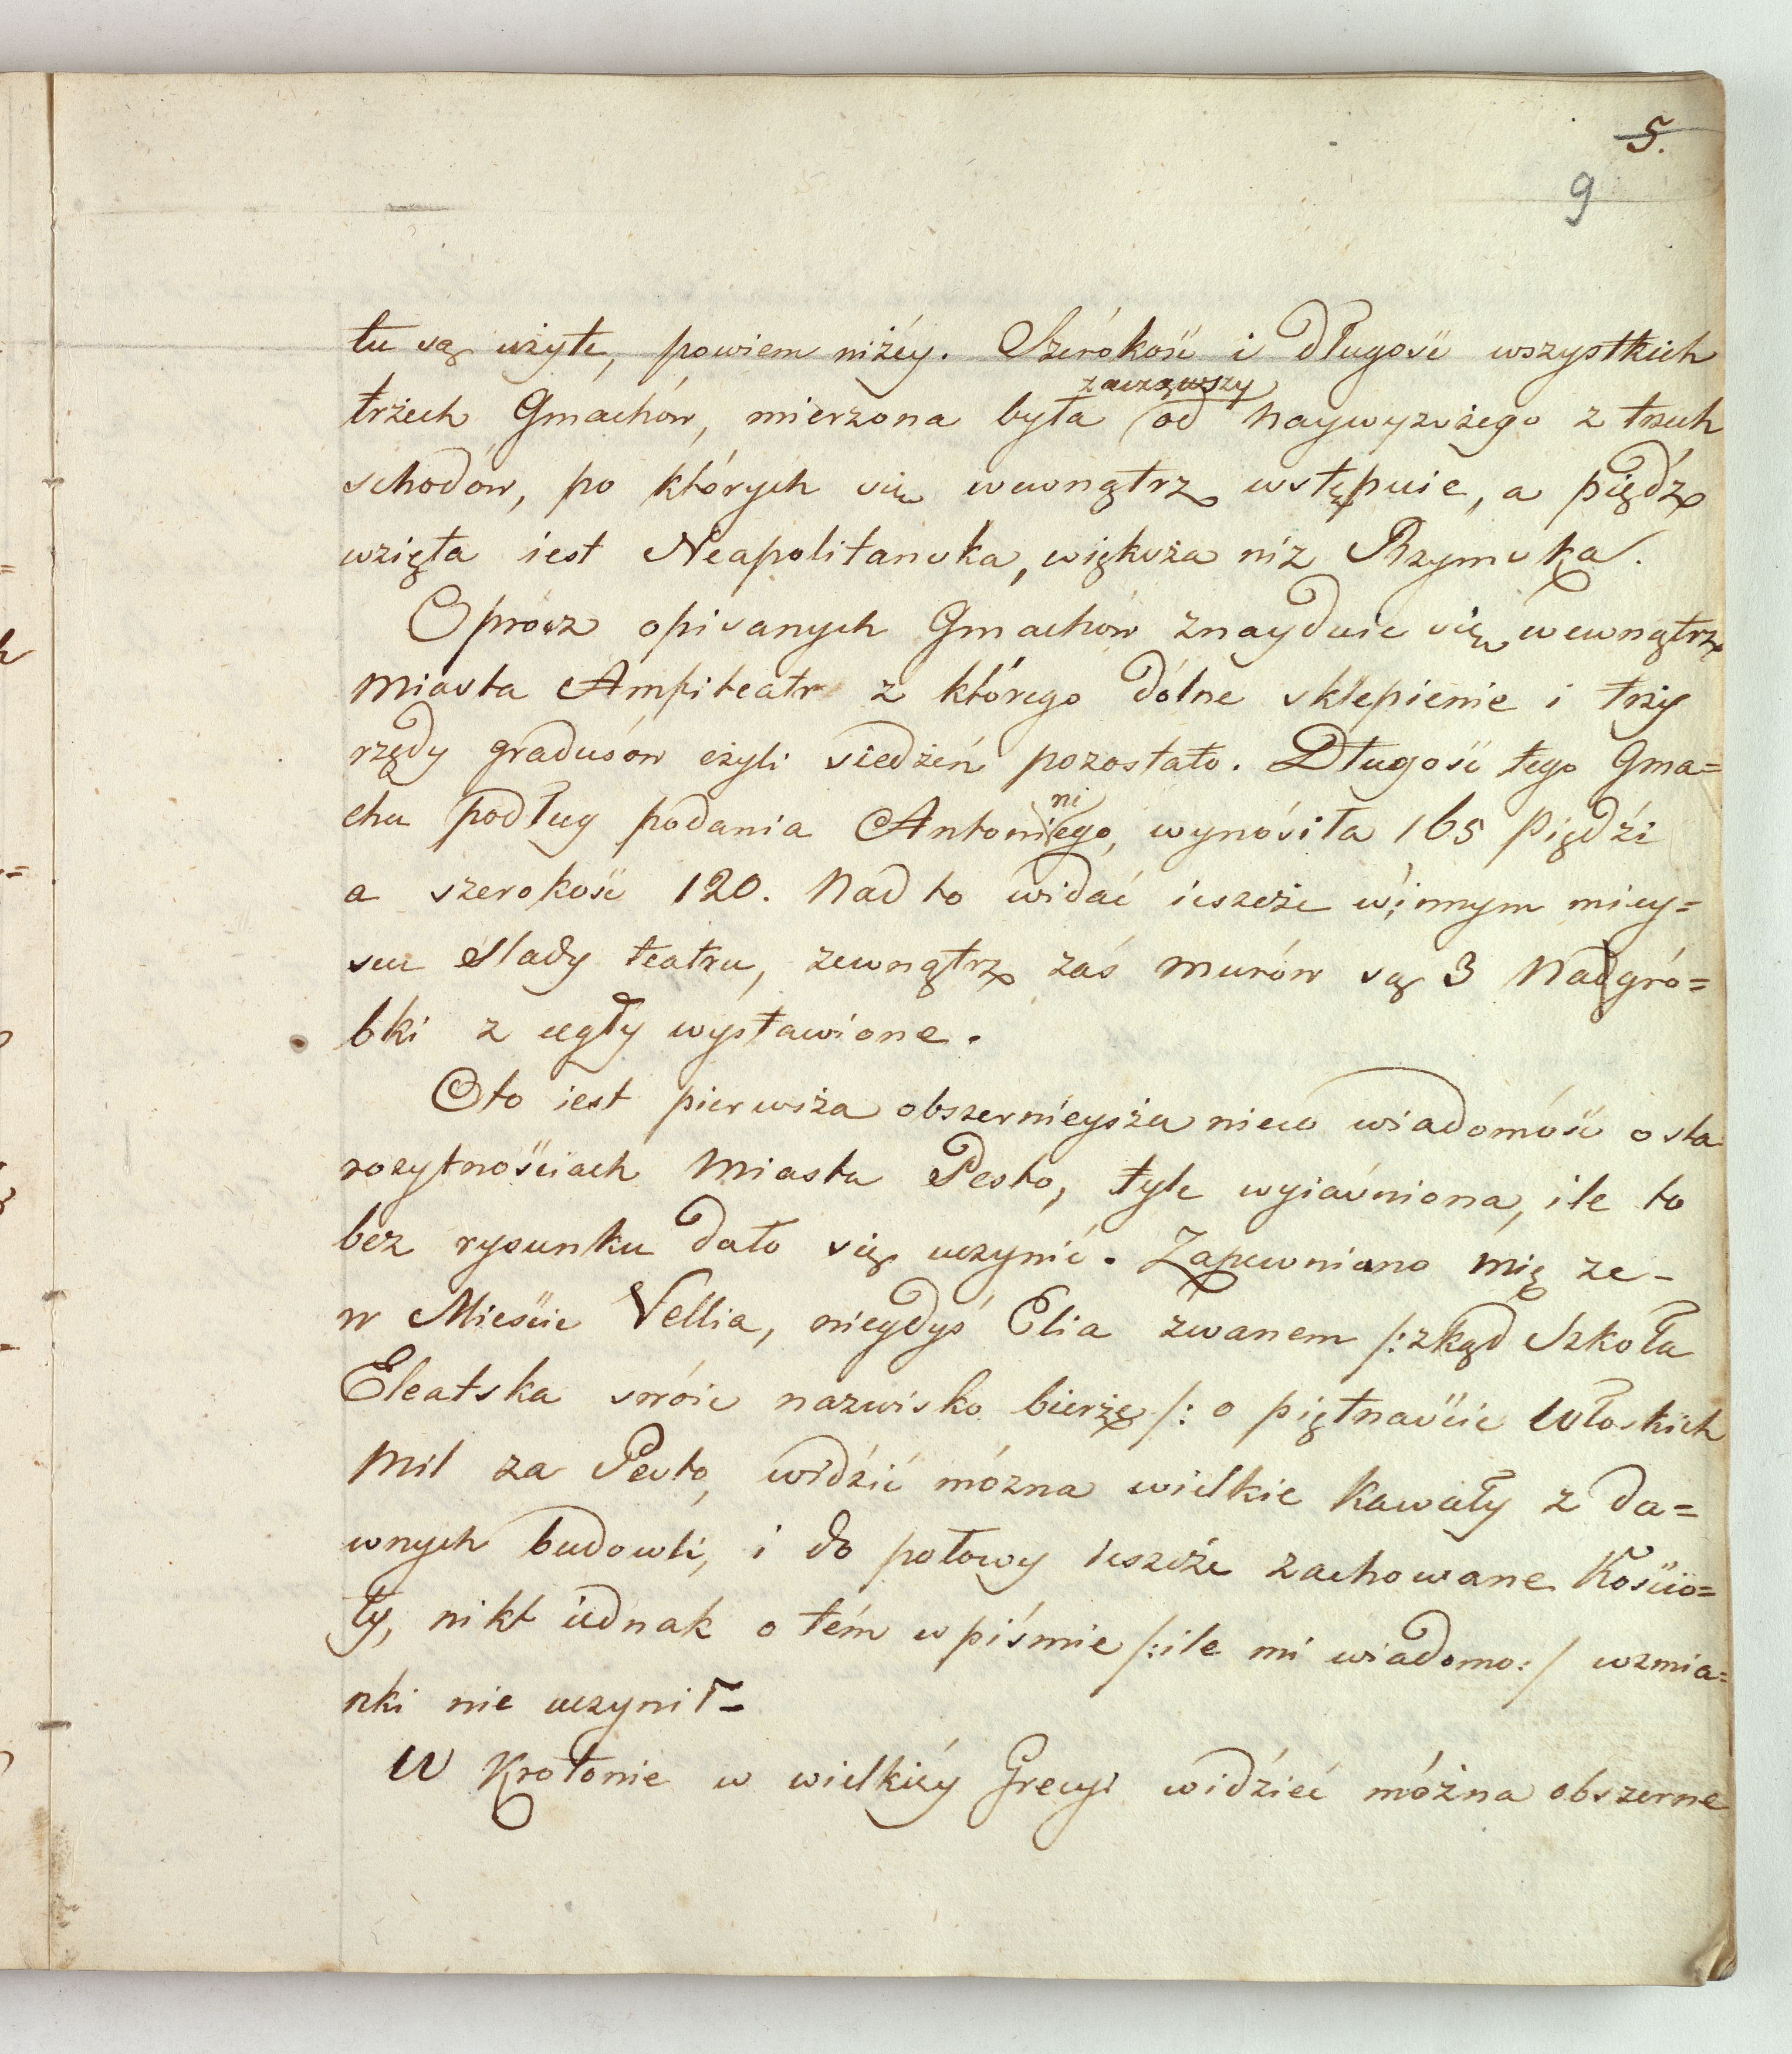 5.
9
tu są użyte, powiem niżéy. Szérokość i długość wszystkich
zacząwszy
trzech Gmachów, mierzona była od naywyższego z trzech
schodów, po których się wewnątrz wstępuie, a piędź
wzięta iest Neapolitanska, większa niż Rzymska.
Oprócz opisanych Gmachów znayduie się wewnątrz
miasta Amfiteatr z którego dólne sklepienie i trzy
rzędy gradusów czyli siedzeń pozostało. Długość tego Gma=
ni
chu podług podania Antoniego, wynósiła 165 piędzi
a szerokość 120. Nad to widać ieszcze w innym miey=
scu slady teatru, zewnątrz zaś murów są 3 Nadgró=
bki z cegły wystawione.
Oto iest pierwsza obszernieysza nieco wiadomość o sta
rożytnościach Miasta Pesto, tyle wyiaśniona, ile to
bez rysunku dało się uczynić. Zapewniano mię że-
w Mieście Vellia, niegdyś Elia zwanem /: zkąd Szkoła
Eleatska swóie nazwisko bierze /: o piętnaście Włoskich
Mil za Pesto, widzić można wielkie kawały z da=
wnych budowli, i do połowy ieszcze zachowane Kościo=
ły, nikt iednak o tém w piśmie /: ile mi wiadomo :/ wzmia=
nki nie uczynił-
W Krotonie w wielkiéy Grecyi widzieć można obszerne